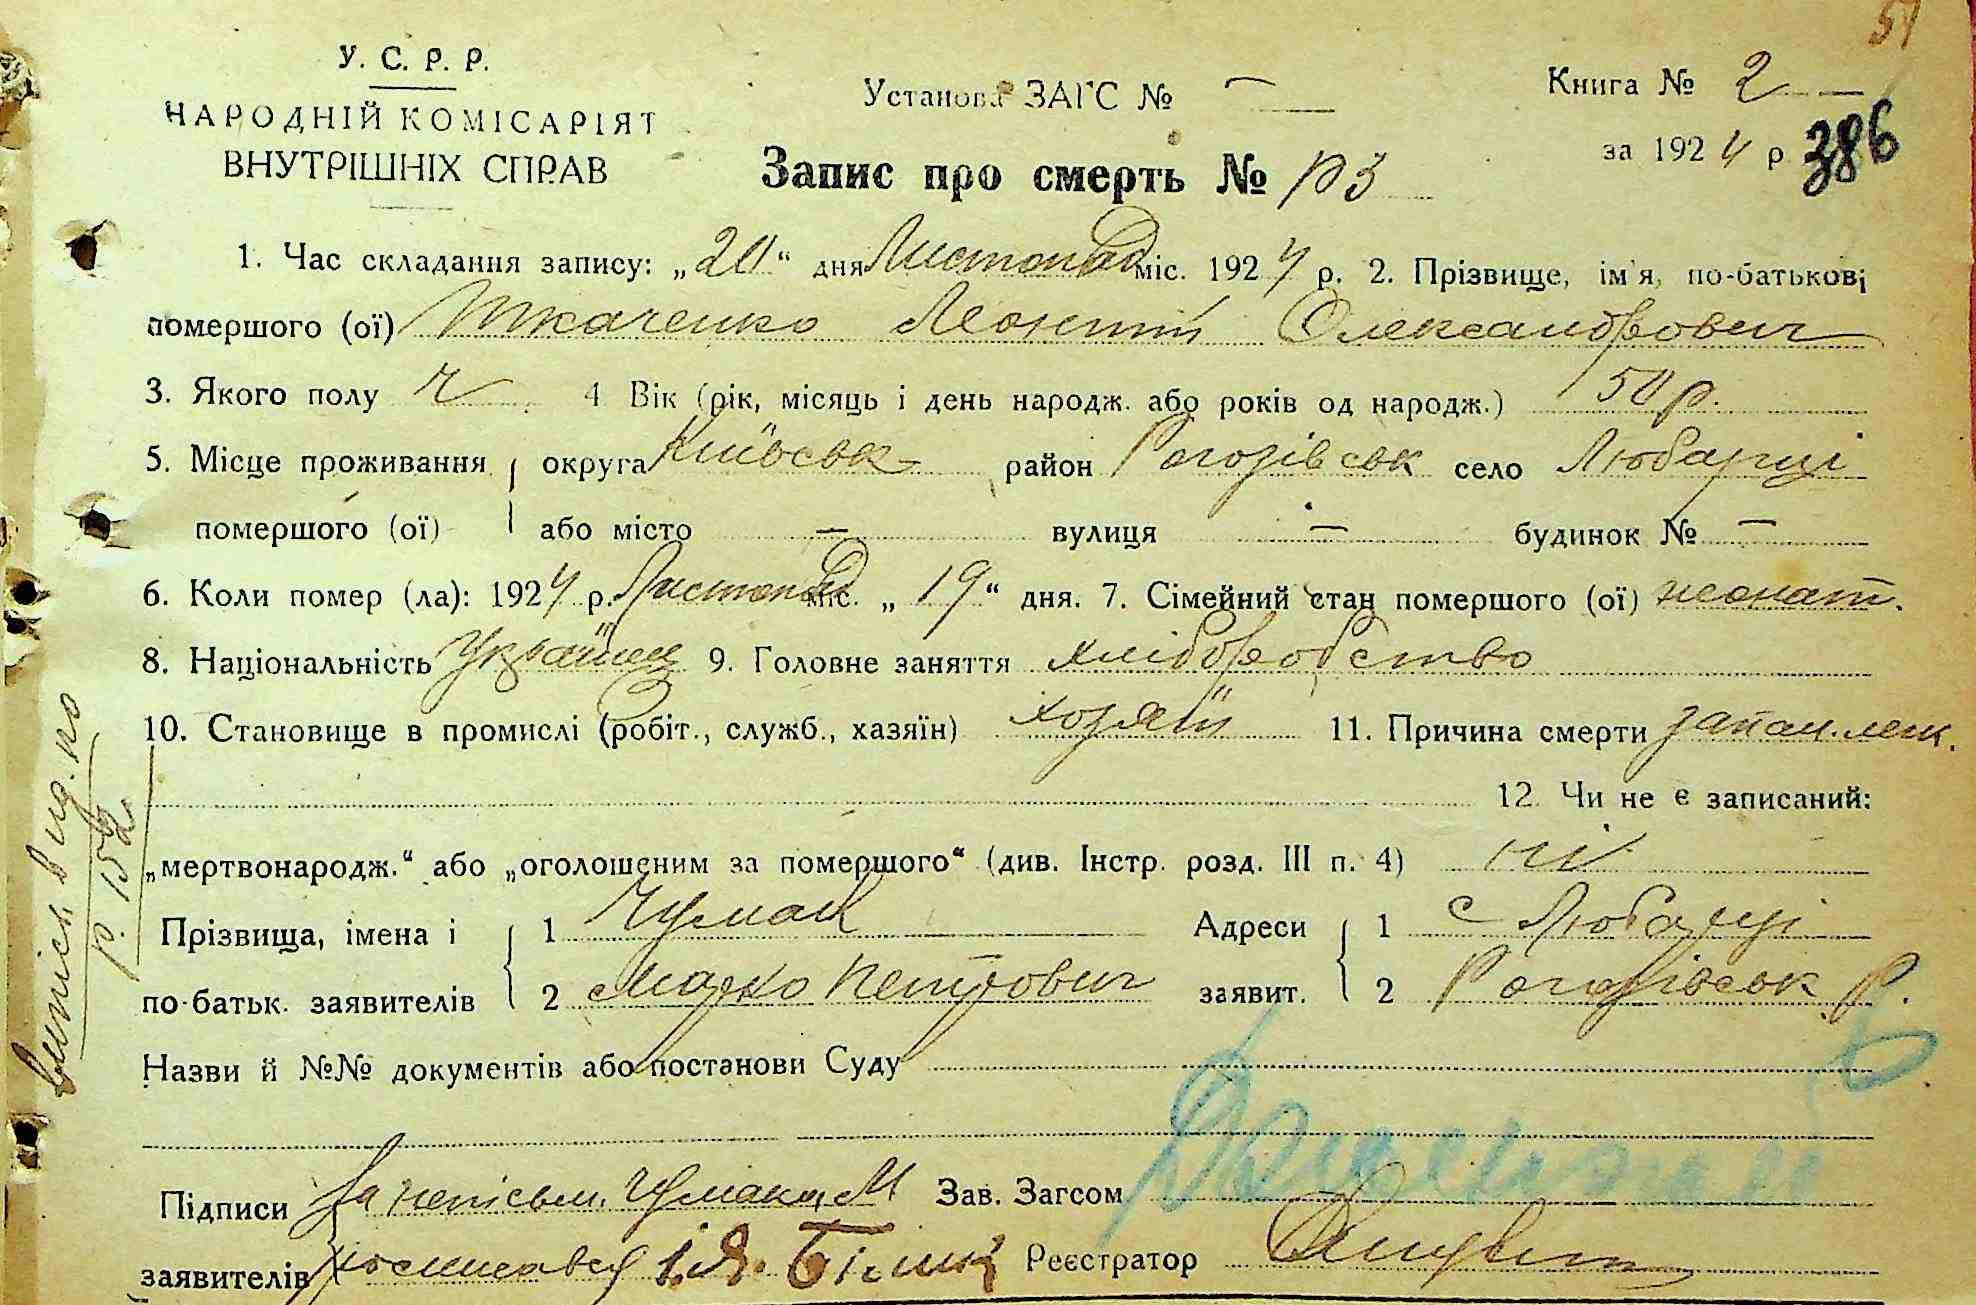 51
У. С. Р. Р.
НАРОДНІЙ КОМІСАРІЯТ
ВНУТРІШНІХ СПРАВ
Установа ЗАГС № —
Книга № 2
за 1924 р. 386
Запис про смерть №
1. Час складання запису: „20“ дня Листопад міс. 1924 р. 2. Прізвище, ім'я, по-батькові
помершого (ої) Ткаченко Леонтій Олександрович
3. Якого полу ч 4 Вік (рік, місяць і день народж. або років од народж.) 50 р.
5. Місце проживання округа Київськ район Рогозівськ село Любарці
помершого (ої) або місто — вулиця — будинок № —
6. Коли помер (ла): 1924 р. Листопад міс. „19“ дня. 7. Сімейний стан помершого (ої) жонат.
8. Національність Українец 9. Головне заняття хліборобство
10. Становище в промислі (робіт., служб., хазяїн) хозяїн 11. Причина смерти запал. легк.
12. Чи не є записаний:
„мертвонародж.“ або „оголошеним за помершого“ (див. Інстр. розд. III п. 4) ні
Прізвища, імена і 1 Чумак Адреси 1 с Любарці
по-батьк. заявителів 2 Марко Петрович заявит. 2 Рогозівськ р.
Назви й №№ документів або постанови Суду
Підписи за неписьм. Чумака М Зав. Загсом
заявителів росписався І. Я. Реєстратор
р. 152